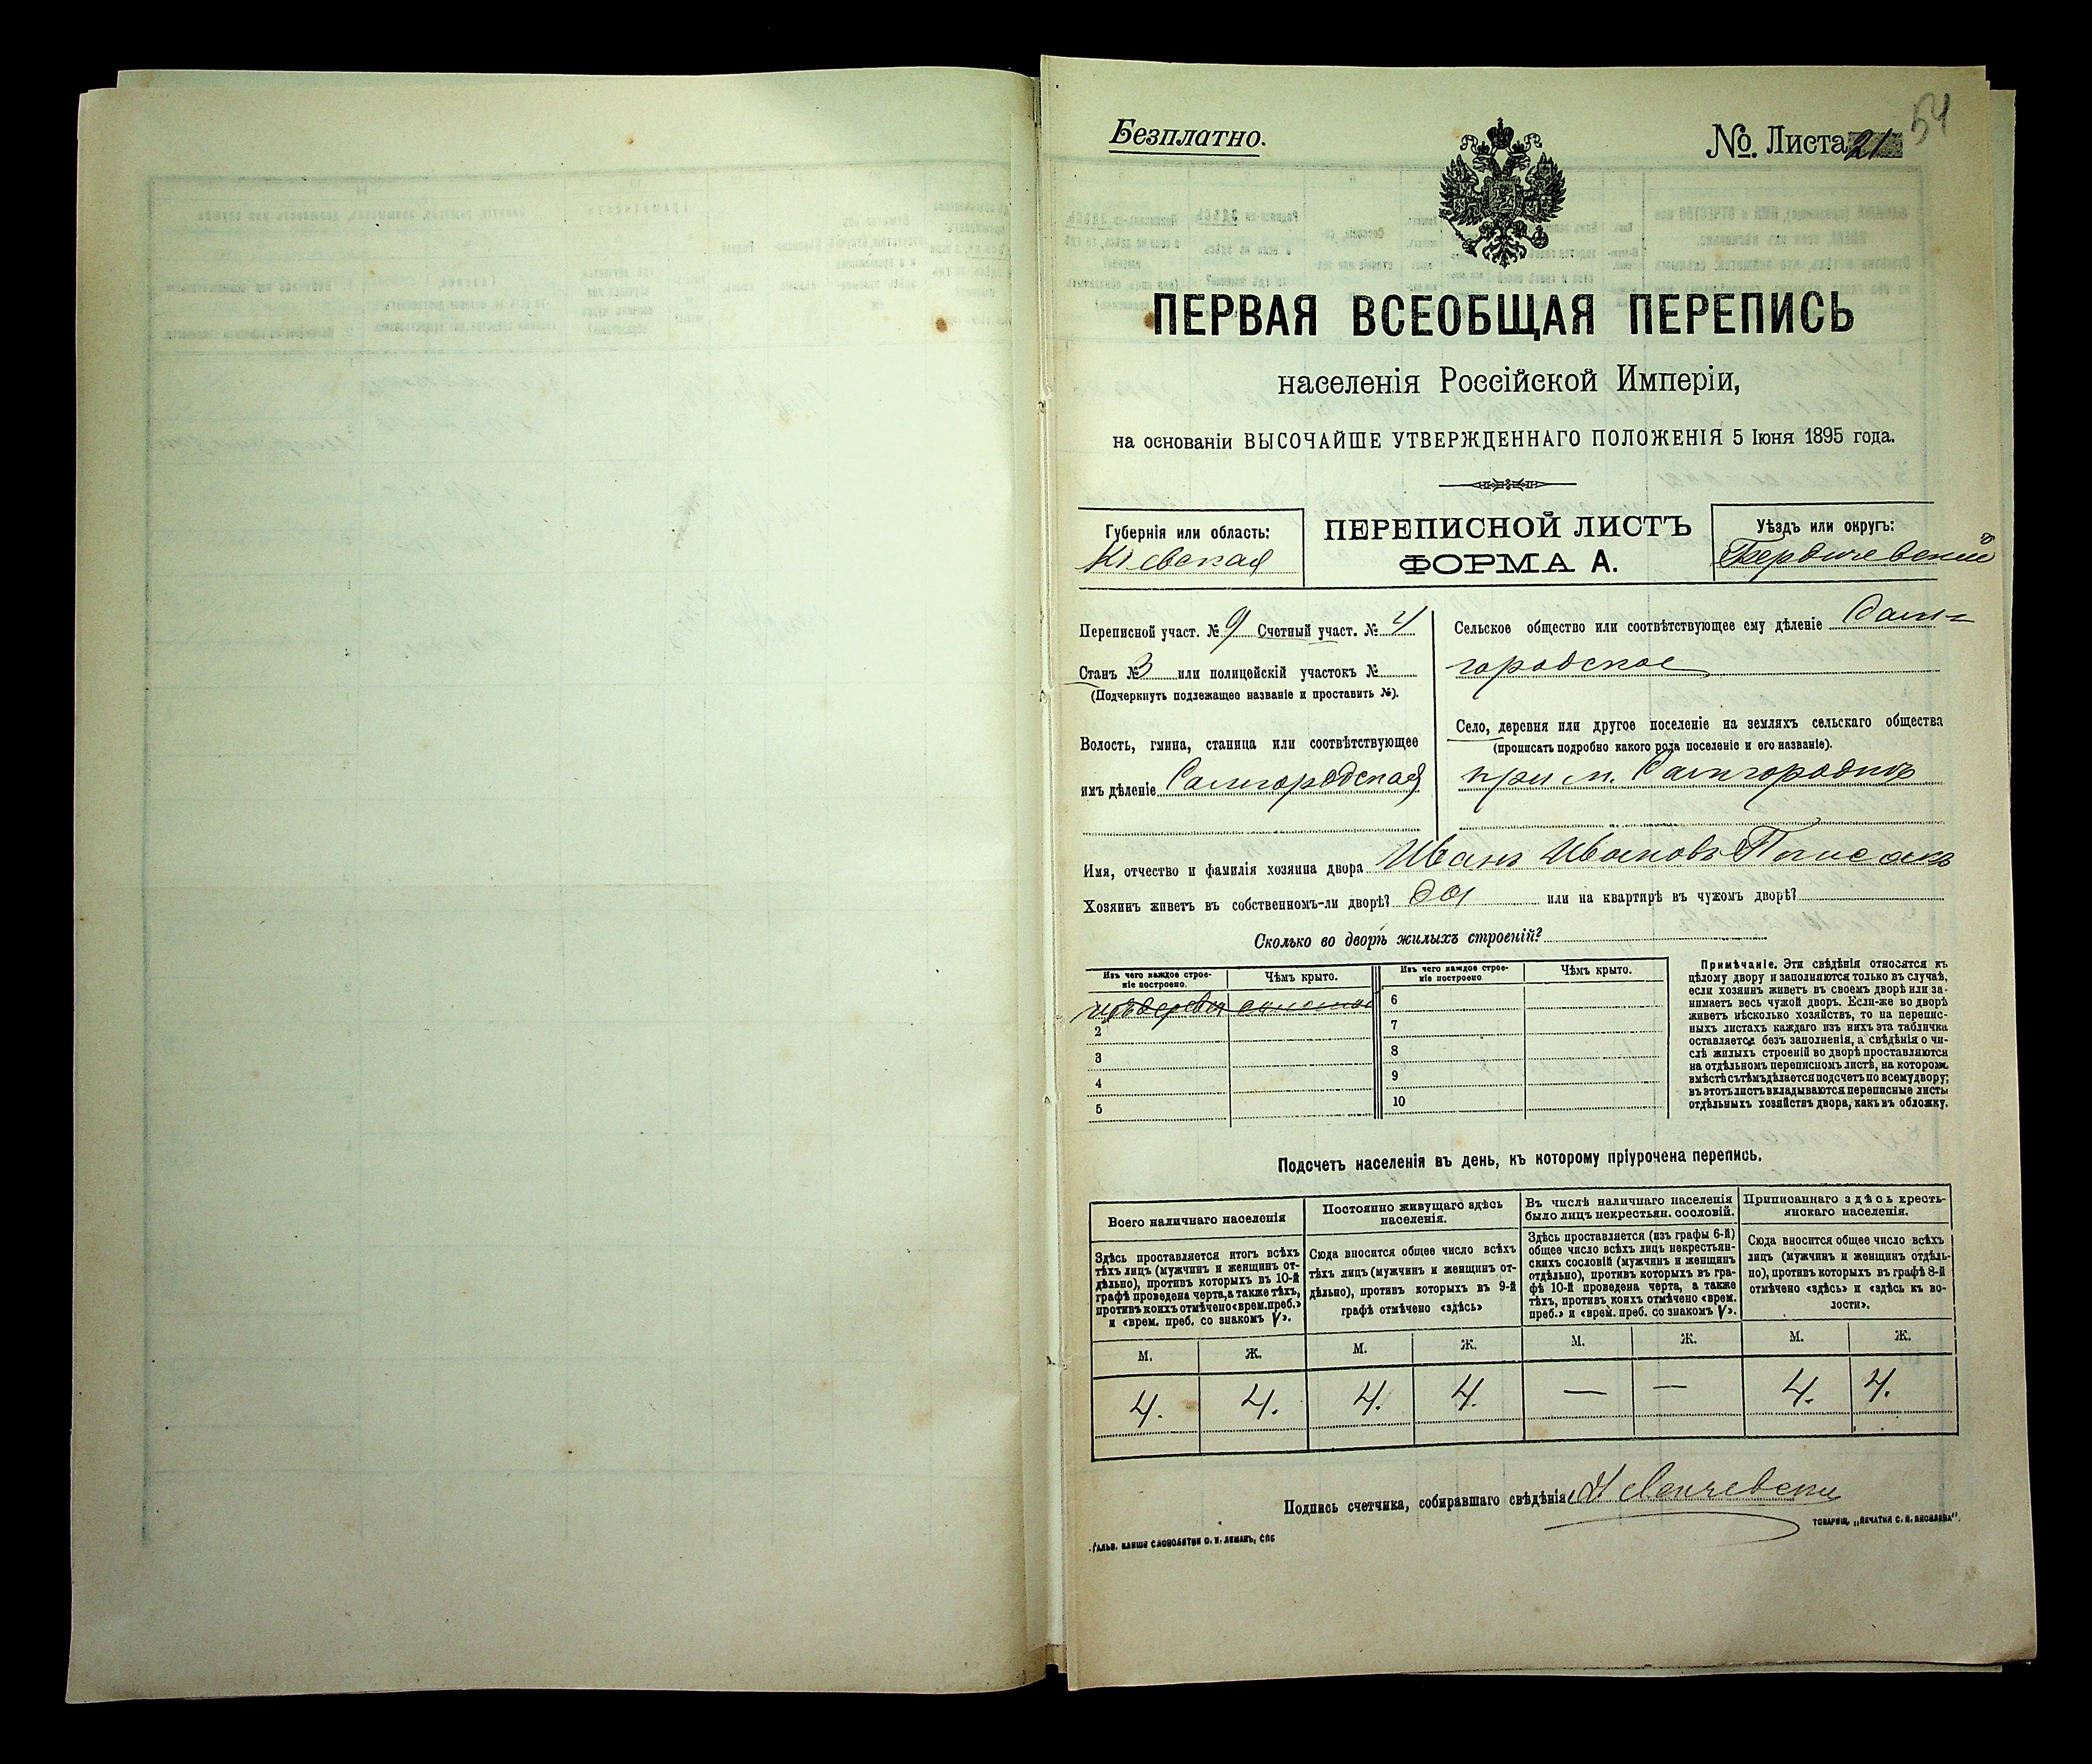 54
Безплатно.
№. Листа 21
ПЕРВАЯ ВСЕОБЩАЯ ПЕРЕПИСЬ
населенія Россійской Имперіи,
на основаніи ВЫСОЧАЙШЕ УТВЕРЖДЕННАГО ПОЛОЖЕНІЯ 5 Іюня 1895 года.
Губернія или область:
Кіевская
ПЕРЕПИСНОЙ ЛИСТЪ
ФОРМА А.
Уѣздъ или округъ:
Бердичевскій
Переписной участ. № 9 Счетный участ. № 4
Станъ № 3 или полицейскій участокъ №
(Подчеркнуть подлежащее названіе и проставить №).
Волость, гмина, станица или соотвѣтствующее
имъ дѣленіе Самгородская
Сельское общество или соотвѣтствующее ему дѣленіе Сам-
городское
Село, деревня или другое поселеніе на земляхъ сельскаго общества
(прописать подробно какого рода поселеніе и его названіе).
при м. Самгородкѣ
Имя, отчество и фамилія хозяина двора Иванъ Ивановъ
Хозяинъ живетъ въ собственномъ-ли дворѣ? да или на квартирѣ въ чужомъ дворѣ?
Сколько во дворѣ жилыхъ строеній?
Изъ чего каждое строе-
ніе построено.
Чѣмъ крыто.
Изъ чего каждое строе-
ніе построено
Чѣмъ крыто.
изъ дерева соломы
2
3
4
5
6
7
8
9
10
Примѣчаніе. Эти свѣдѣнія относятся къ
цѣлому двору и заполняются только въ случаѣ,
если хозяинъ живетъ въ своемъ дворѣ или за-
нимаетъ весь чужой дворъ. Если-же во дворѣ
живетъ нѣсколько хозяйствъ, то на перепис-
ныхъ листахъ каждаго изъ нихъ эта табличка
оставляется безъ заполненія, а свѣдѣнія о чи-
слѣ жилыхъ строеній во дворѣ проставляются
на отдѣльномъ переписномъ листѣ, на которомъ
вмѣстѣ съ тѣмъ дѣлается подсчетъ по всему двору;
въ этотъ листъ вкладываются переписные листы
отдѣльныхъ хозяйствъ двора, какъ въ обложку.
Подсчетъ населенія въ день, къ которому пріурочена перепись.
Всего наличнаго населенія
Постоянно живущаго здѣсь
населенія.
Въ числѣ наличнаго населенія
было лицъ некрестьян. сословій.
Приписаннаго здѣсь кресть-
янскаго населенія.
Здѣсь проставляется итогъ всѣхъ
тѣхъ лицъ (мужчинъ и женщинъ от-
дѣльно), противъ которыхъ въ 10-й
графѣ проведена черта, а также тѣхъ,
противъ коихъ отмѣчено «врем. преб.»
и «врем. преб. со знакомъ V».
Сюда вносится общее число всѣхъ
тѣхъ лицъ (мужчинъ и женщинъ от-
дѣльно), противъ которыхъ въ 9-й
графѣ отмѣчено «здѣсь»
Здѣсь проставляется (изъ графы 6-й)
общее число всѣхъ лицъ некрестьян-
скихъ сословій (мужчинъ и женщинъ
отдѣльно), противъ которыхъ въ гра-
фѣ 10-й проведена черта, а также
тѣхъ, противъ коихъ отмѣчено «врем.
преб.» и «врем. преб. со знакомъ V».
Сюда вносится общее число всѣхъ
лицъ (мужчинъ и женщинъ отдѣль-
но), противъ которыхъ въ графѣ 8-й
отмѣчено «здѣсь» и «здѣсь къ во-
лости».
М. Ж. М. Ж. М. Ж. М. Ж.
4. 4. 4. 4. — — 4. 4.
Подпись счетчика, собиравшаго свѣдѣнія
Гальв. клише словолитни О. И. Леманъ, СПБ
ТОВАРИЩ. „ПЕЧАТНЯ С. П. ЯКОВЛЕВА".